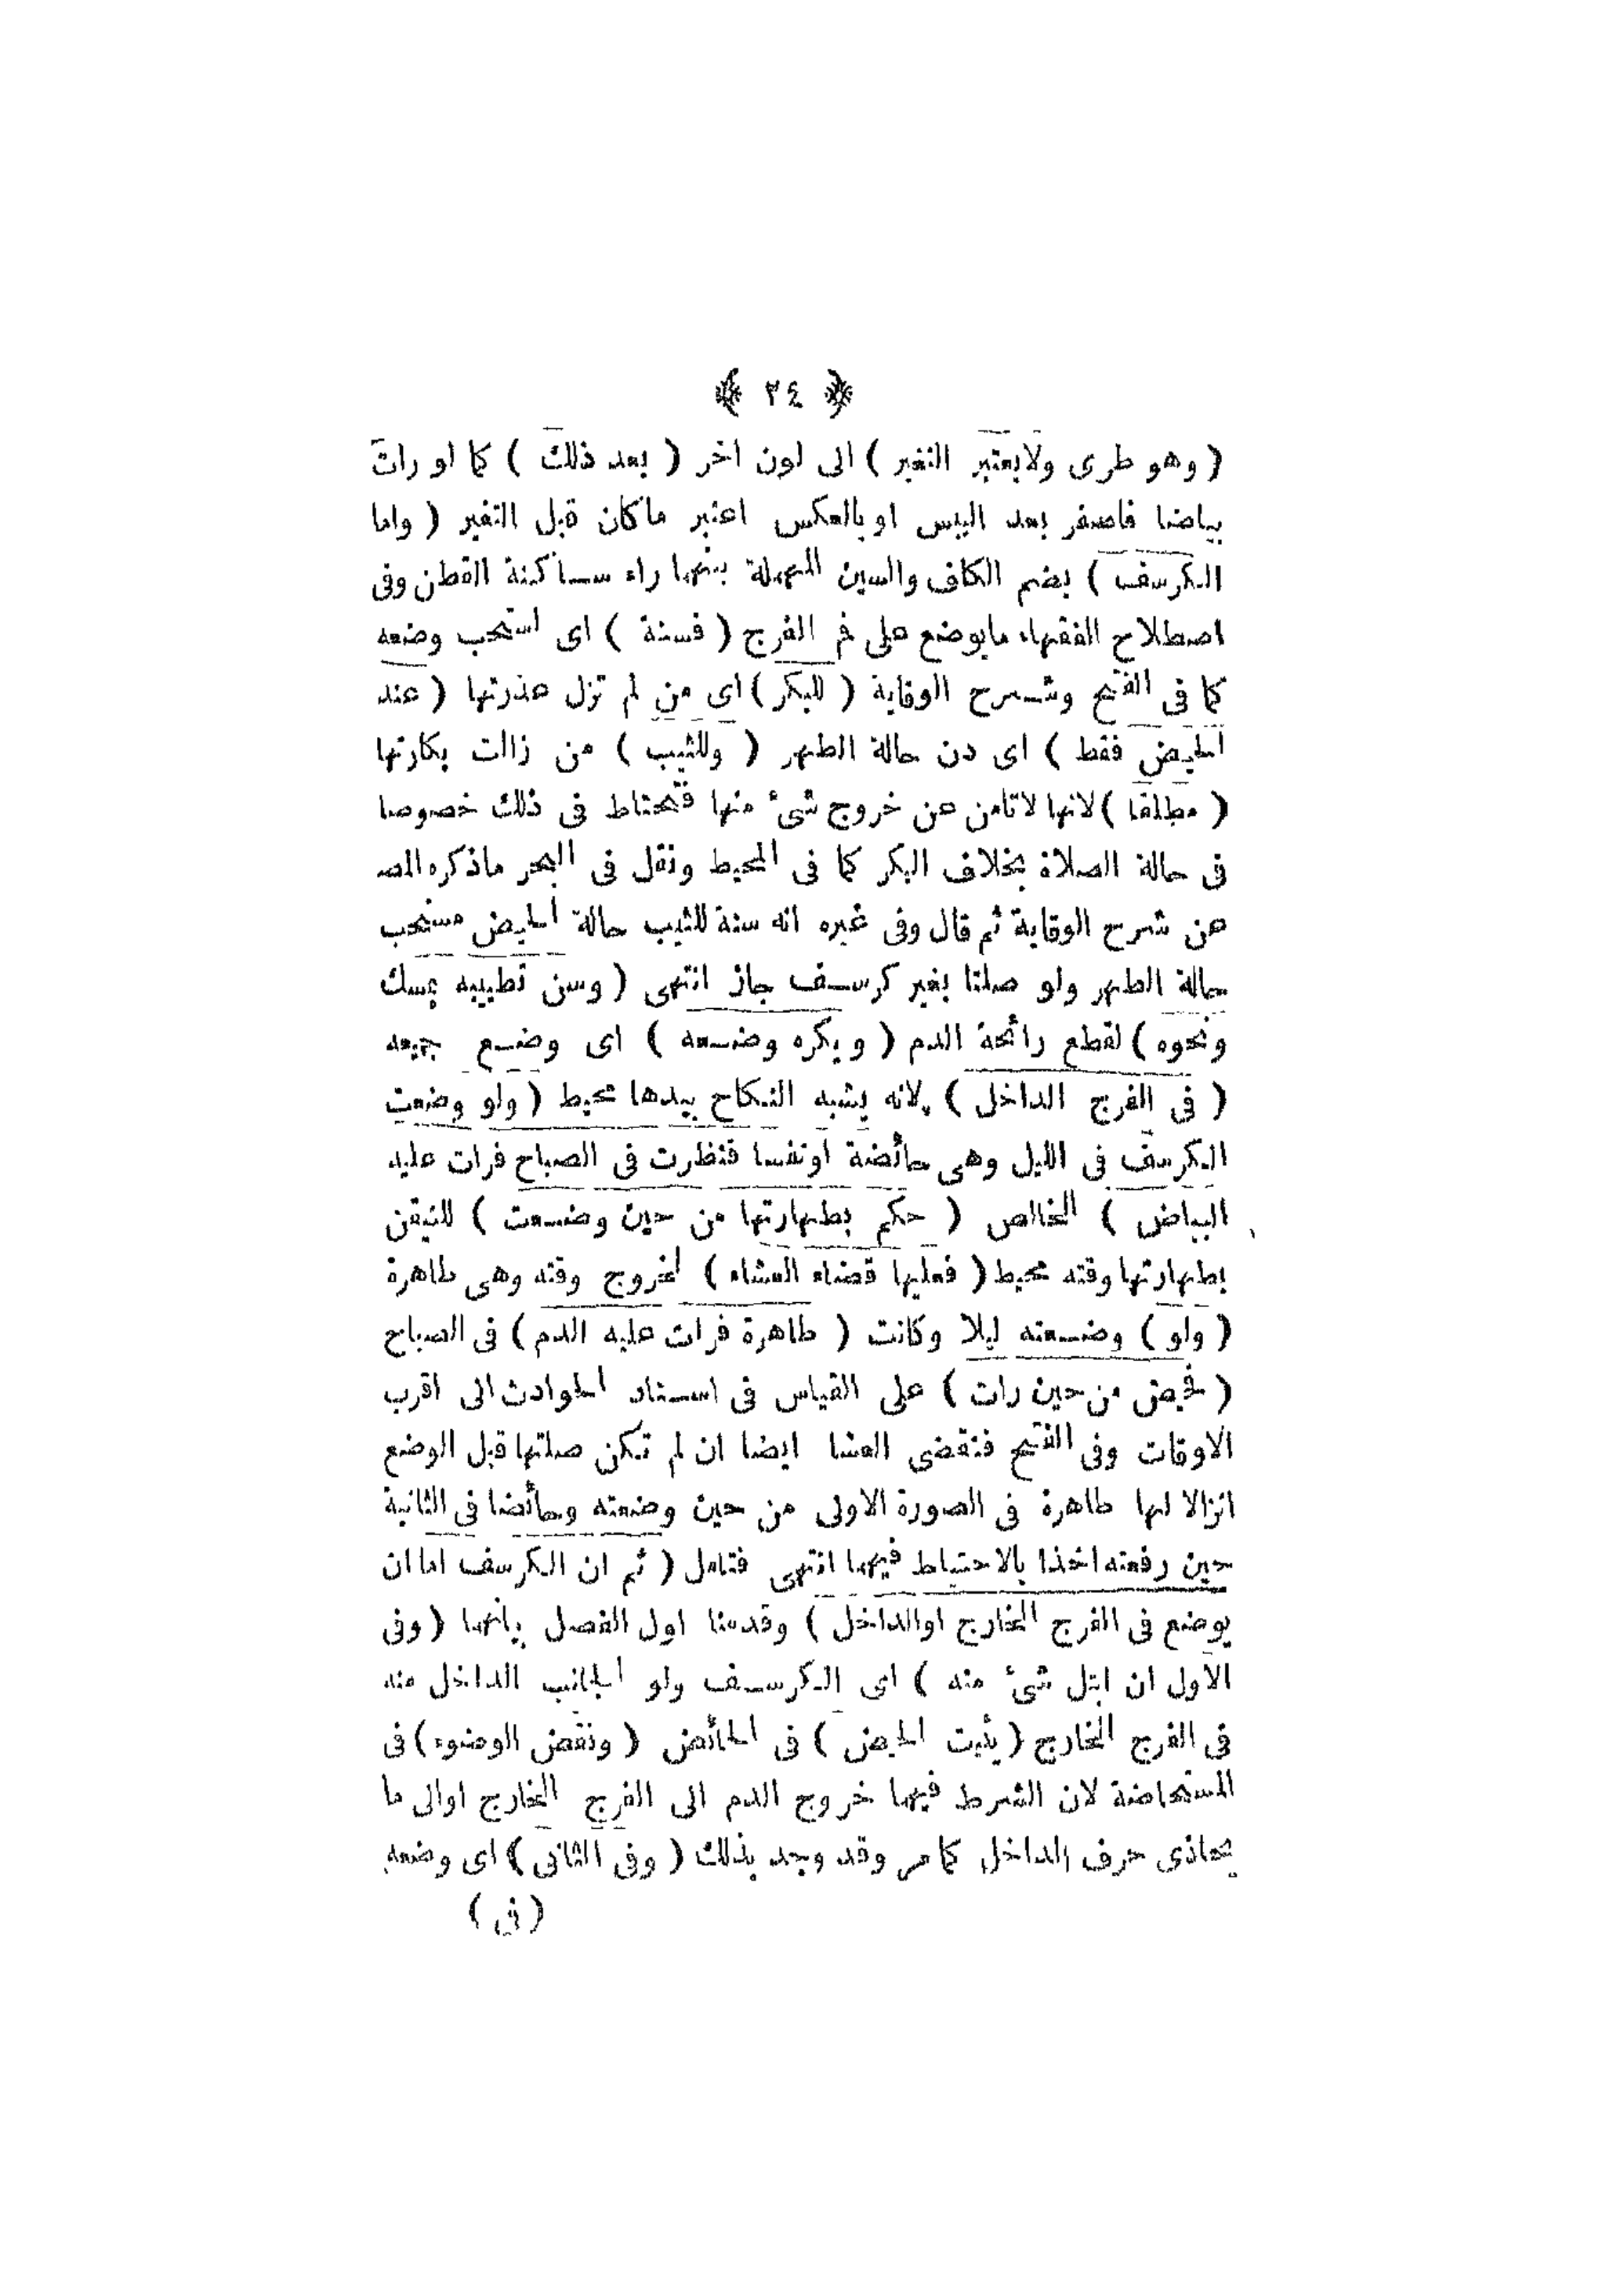 ﴿ ٢٤ ﴾
( وهو طرى ولايعتبر التغير ) الى لون اخر ( بعد ذلك ) كما لو رات
بياضا فاصفر بعد اليبس او بالعكس اعتبر ماكان قبل التغير ( واما
الكرسف ) بضم الكاف والسين المهملة بينهما راء ساكنة القطن وفى
اصطلاح الفقهاء مايوضع على فم الفرج ( فسنة ) اى استحب وضعه
كما فى الفتح وشرح الوقاية ( للبكر ) اى من لم تزل عذرتها ( عند
الحيض فقط ) اى دن حالة الطهر ( وللثيب ) من زالت بكارتها
( مطلقا ) لانها لاتامن عن خروج شئ منها فتحتاط فى ذلك خصوصا
فى حالة الصلاة بخلاف البكر كما فى المحيط ونقل فى البحر ماذكره المص
عن شرح الوقاية ثم قال وفى غيره انه سنة للثيب حالة الحيض مستحب
حالة الطهر ولو صلتا بغير كرسف جاز انتهى ( وسن تطييبه بمسك
ونحوه ) لقطع رائحة الدم ( ويكره وضعه ) اى وضع جميعه
( فى الفرج الداخل ) لانه يشبه النكاح بيدها محيط ( ولو وضعت
الكرسف فى الليل وهى حائضة اونفسا فنظرت فى الصباح فرات عليه
البياض ) الخالص ( حكم بطهارتها من حين وضعت ) للتيقن
بطهارتها وقته محيط ( فعليها قضاء العشاء ) لخروج وقته وهى طاهرة
( ولو ) وضعته ليلا وكانت ( طاهرة فرات عليه الدم ) فى الصباح
( فحيض من حين رات ) على القياس فى اسناد الحوادث الى اقرب
الاوقات وفى الفتح فتقضى العشا ايضا ان لم تكن صلتها قبل الوضع
انزالا لها طاهرة فى الصورة الاولى من حين وضعته وحائضا فى الثانية
حين رفعته اخذا بالاحتياط فيهما انتهى فتامل ( ثم ان الكرسف اما ان
يوضع فى الفرج الخارج اوالداخل ) وقدمنا اول الفصل بيانهما ( وفى
الاول ان ابتل شئ منه ) اى الكرسف ولو الجانب الداخل منه
فى الفرج الخارج ( يثبت الحيض ) فى الحائض ( ونقض الوضوء ) فى
المستحاضة لان الشرط فيهما خروج الدم الى الفرج الخارج اوالى ما
يحاذى حرف الداخل كمامر وقد وجد بذلك ( وفى الثانى ) اى وضعه
( فى )